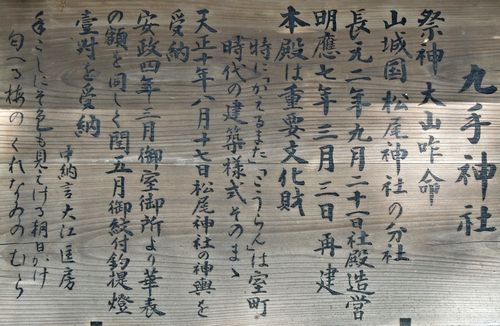 九手神社
祭神 大山咋命
山城国松尾神社の分社
長元二年九月二十一日社殿造営
明應七年三月三日再建
本殿は重要文化財
時に「かえるまた」「こうらん」は室町
時代の建築様式そのまゝ
天正十年八月十七日松尾神社の神輿を
受納
安政四年三月御室御所より華表
の額を同しく閏五月御紋付釣提燈
壹対を受納
中納言大江匡房
手ごしにそ色も見えける朝日かけ
匂へる梅のくれなゐのむら